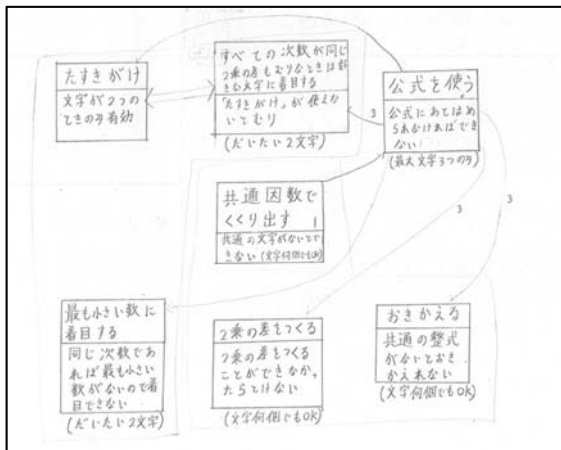 たすきがけ
文字が2つの
ときのみ有効
すべての次数が同じ
2乗の差もむりなときは好
きな文字に着目する
「たすきがけ」が使えな
いとむり
(だいたい2文字)
公式を使う
公式にあてはめ
られなければでき
ない
(最大文字3つのみ)
3
共通因数で
くくり出す 1
共通の文字がないとで
きない(文字何個でもOK)
3
3
最も小さい数に
着目する
同じ次数であ
れば最も小さい
数がないので着
目できない
(だいたい2文字)
2乗の差をつくる
2乗の差をつくる
ことができなか
ったらとけない
(文字何個でもOK)
おきかえる
共通の整式
がないとおき
かえれない
(文字何個でもOK)